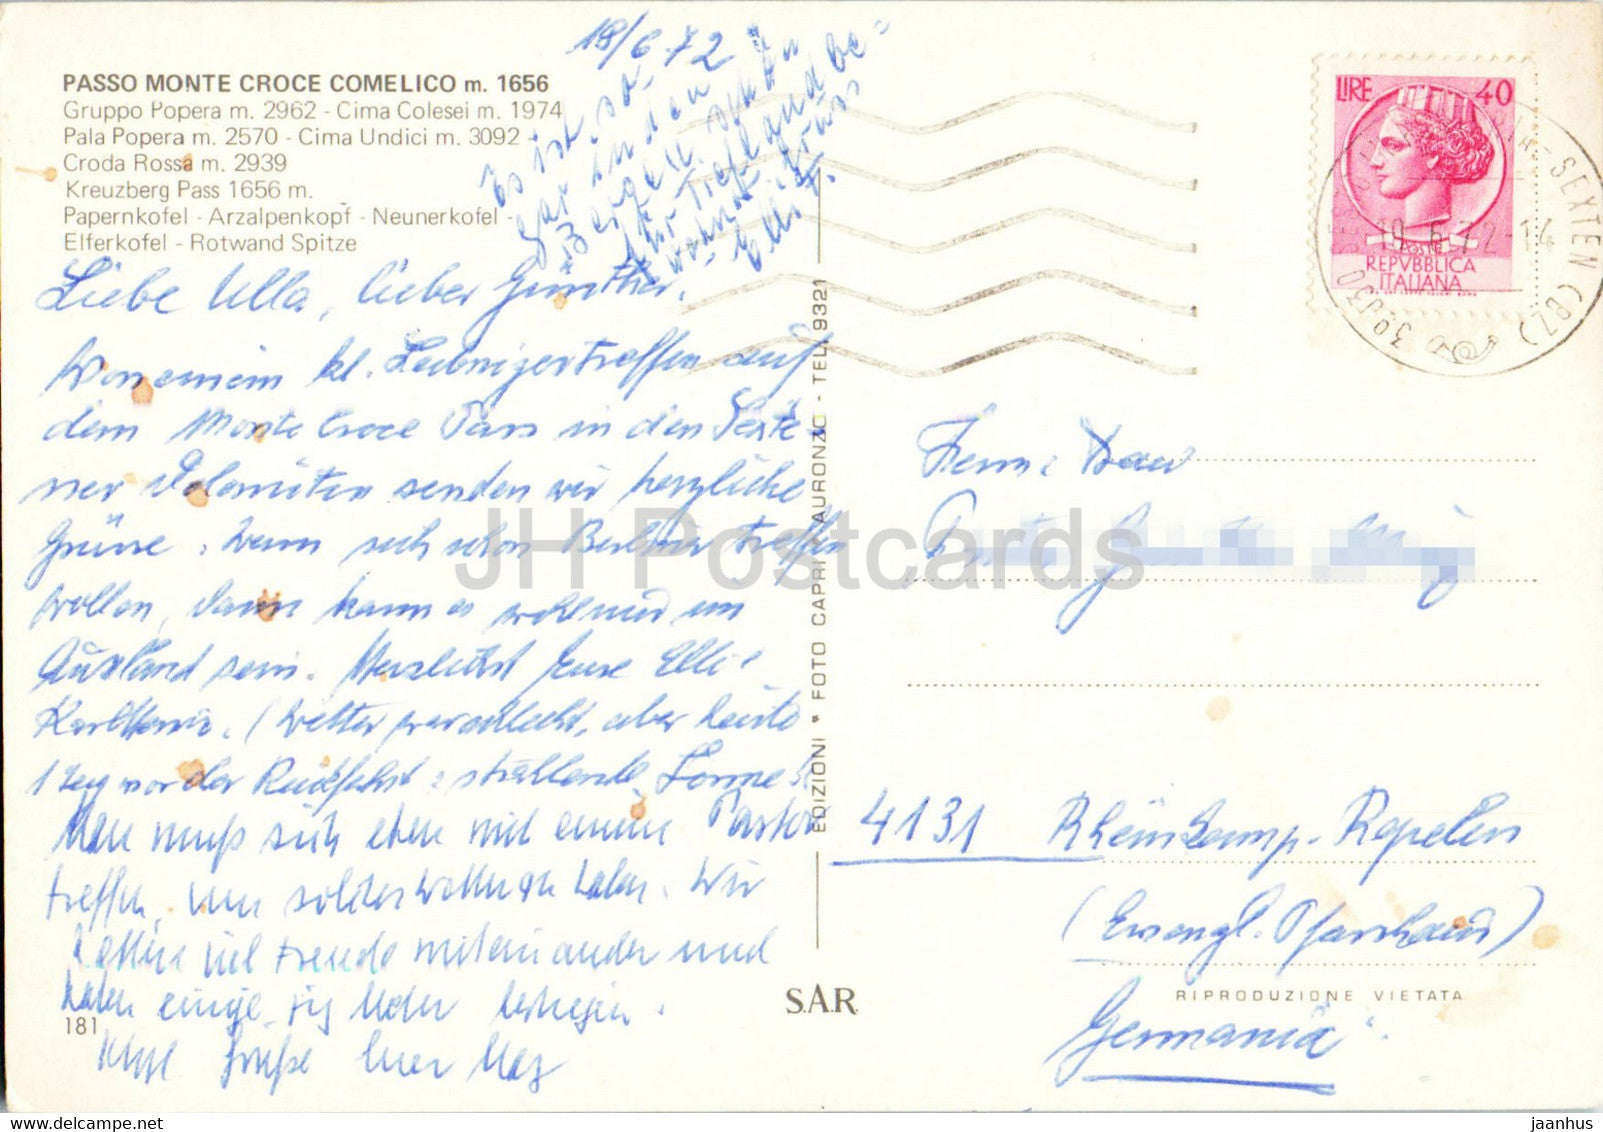 PASSO MONTE CROCE COMELICO m. 1656
Gruppo Popera m. 2962 - Cima Colesei m. 1974
Pala Popera m. 2570 - Cima Undici m. 3092 -
Croda Rossa m. 2939
Kreuzberg Pass 1656 m.
Papernkofel - Arzalpenkopf - Neunerkofel -
Elferkofel - Rotwand Spitze
18/6.72
Es ist so-
gar in den
Bergen schön
für Tieflandbe=
wohner
Elli
Liebe Ulla, lieber Günther,
Von einem kl. treffen auf
dem Monte Croce Pass in den Sexte-
ner Dolomiten senden wir herzliche
Grüsse. Wenn sich schon Berliner treffen
wollen, dann kann es wohl nur im
Ausland sein. Herzlichst Eure Elli +
Karlheinz. (Wetter war schlecht, aber heute
1 Tag vor der Rückfahrt: strahlende Sonne!)
Man muß sich eben mit einem Pastor
treffen, um solches Wetter zu haben. Wir
hatten viel Freude miteinander und
haben einige
Grüße Euer
181
EDIZIONI * FOTO CAPRI / AURONZO - TEL. 9321
S.A.R.
LIRE 40
POSTE
REPVBBLICA
ITALIANA
SEXTEN (BZ)
19.6.72-14
4131 Rheinkamp-Repelen
(Evangl. Pfarrhaus)
RIPRODUZIONE VIETATA
Germania
JH Postcards
www.delcampe.net
jaanhus